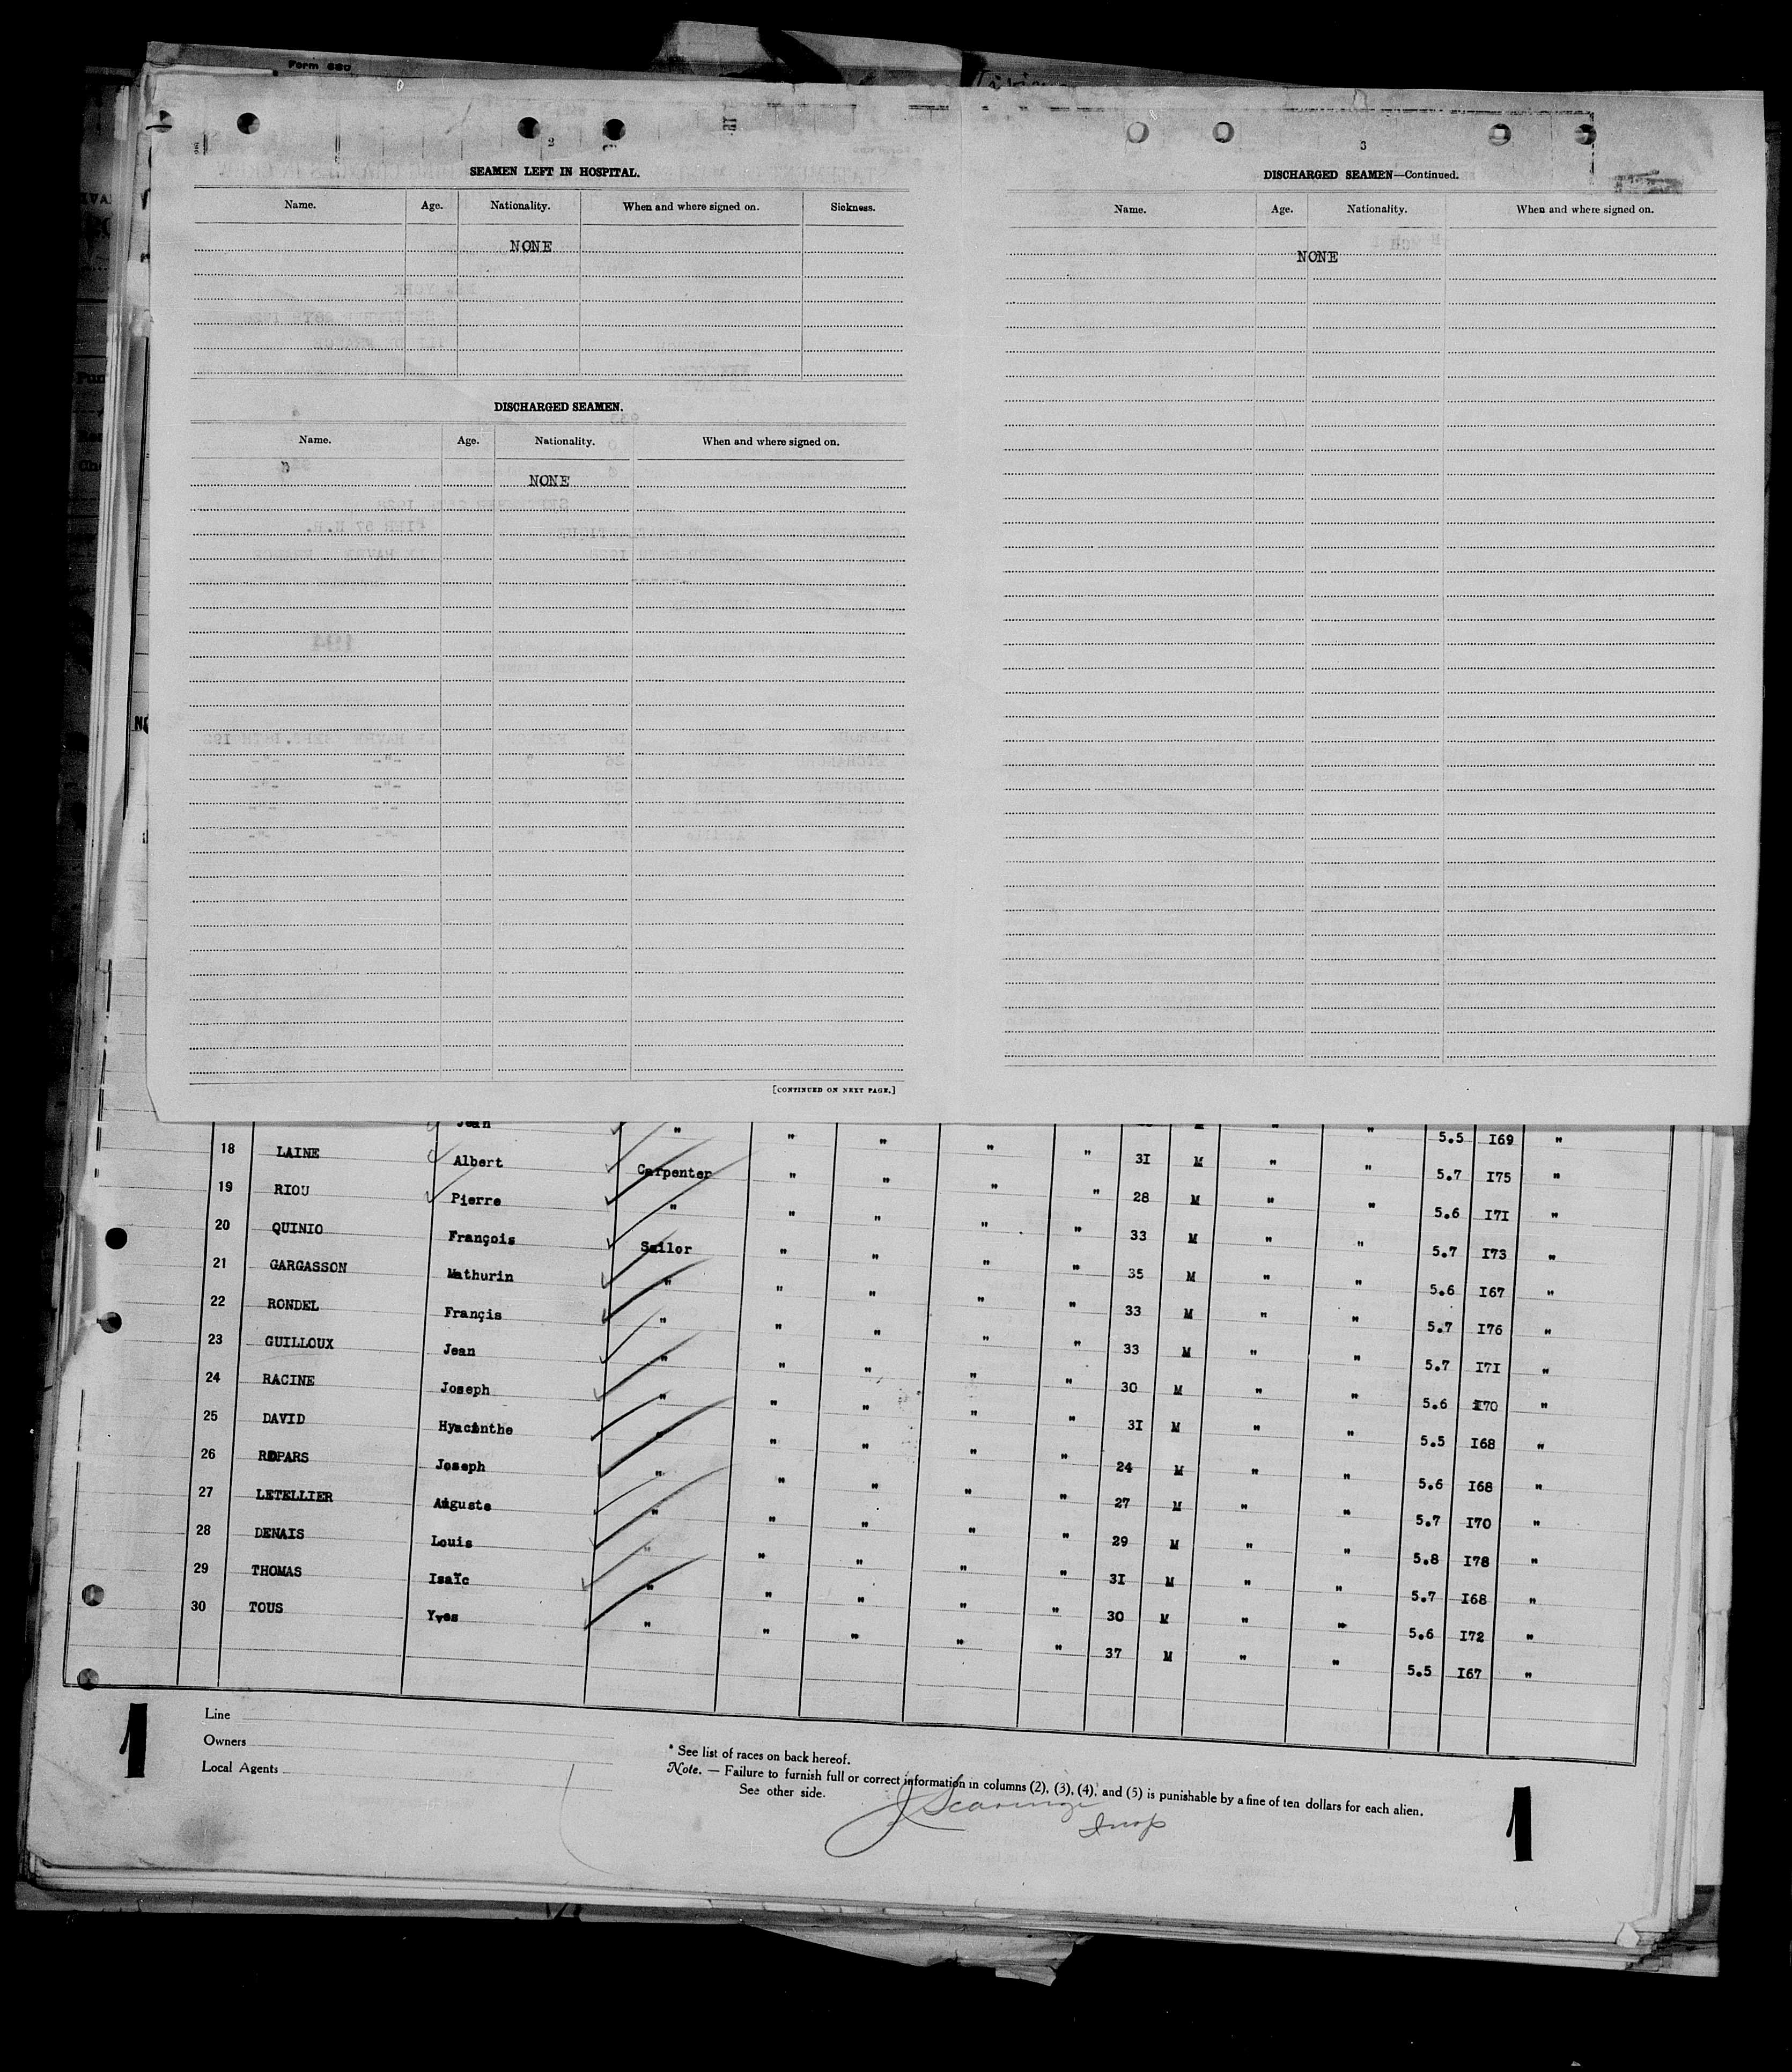 Form 680
2
SEAMEN LEFT IN HOSPITAL.
Name. Age. Nationality. When and where signed on. Sickness.
NONE
DISCHARGED SEAMEN.
Name. Age. Nationality. When and where signed on.
NONE
[CONTINUED ON NEXT PAGE.]
3
DISCHARGED SEAMEN—Continued.
Name. Age. Nationality. When and where signed on.
NONE
5.5 I69 "
Jean " " " " " 31 M " " 5.7 I75 "
18 LAINE Albert Carpenter " " " " 28 M " " 5.6 I71 "
19 RIOU Pierre " " " " " 33 M " " 5.7 I73 "
20 QUINIO François Sailor " " " " 35 M " " 5.6 I67 "
21 GARGASSON Mathurin " " " " " 33 M " " 5.7 I76 "
22 RONDEL Françis " " " " " 33 M " " 5.7 I71 "
23 GUILLOUX Jean " " " " " 30 M " " 5.6 I70 "
24 RACINE Joseph " " " " " 31 M " " 5.5 I68 "
25 DAVID Hyacinthe " " " " " 24 M " " 5.6 I68 "
26 REPARS Joseph " " " " " 27 M " " 5.7 I70 "
27 LETELLIER Auguste " " " " " 29 M " " 5.8 I78 "
28 DENAIS Louis " " " " " 31 M " " 5.7 I68 "
29 THOMAS Isaïc " " " " " 30 M " " 5.6 I72 "
30 TOUS Yves " " " " " 37 M " " 5.5 I67 "
1
Line
Owners
Local Agents
* See list of races on back hereof.
Note. — Failure to furnish full or correct information in columns (2), (3), (4), and (5) is punishable by a fine of ten dollars for each alien.
See other side.
Insp
1